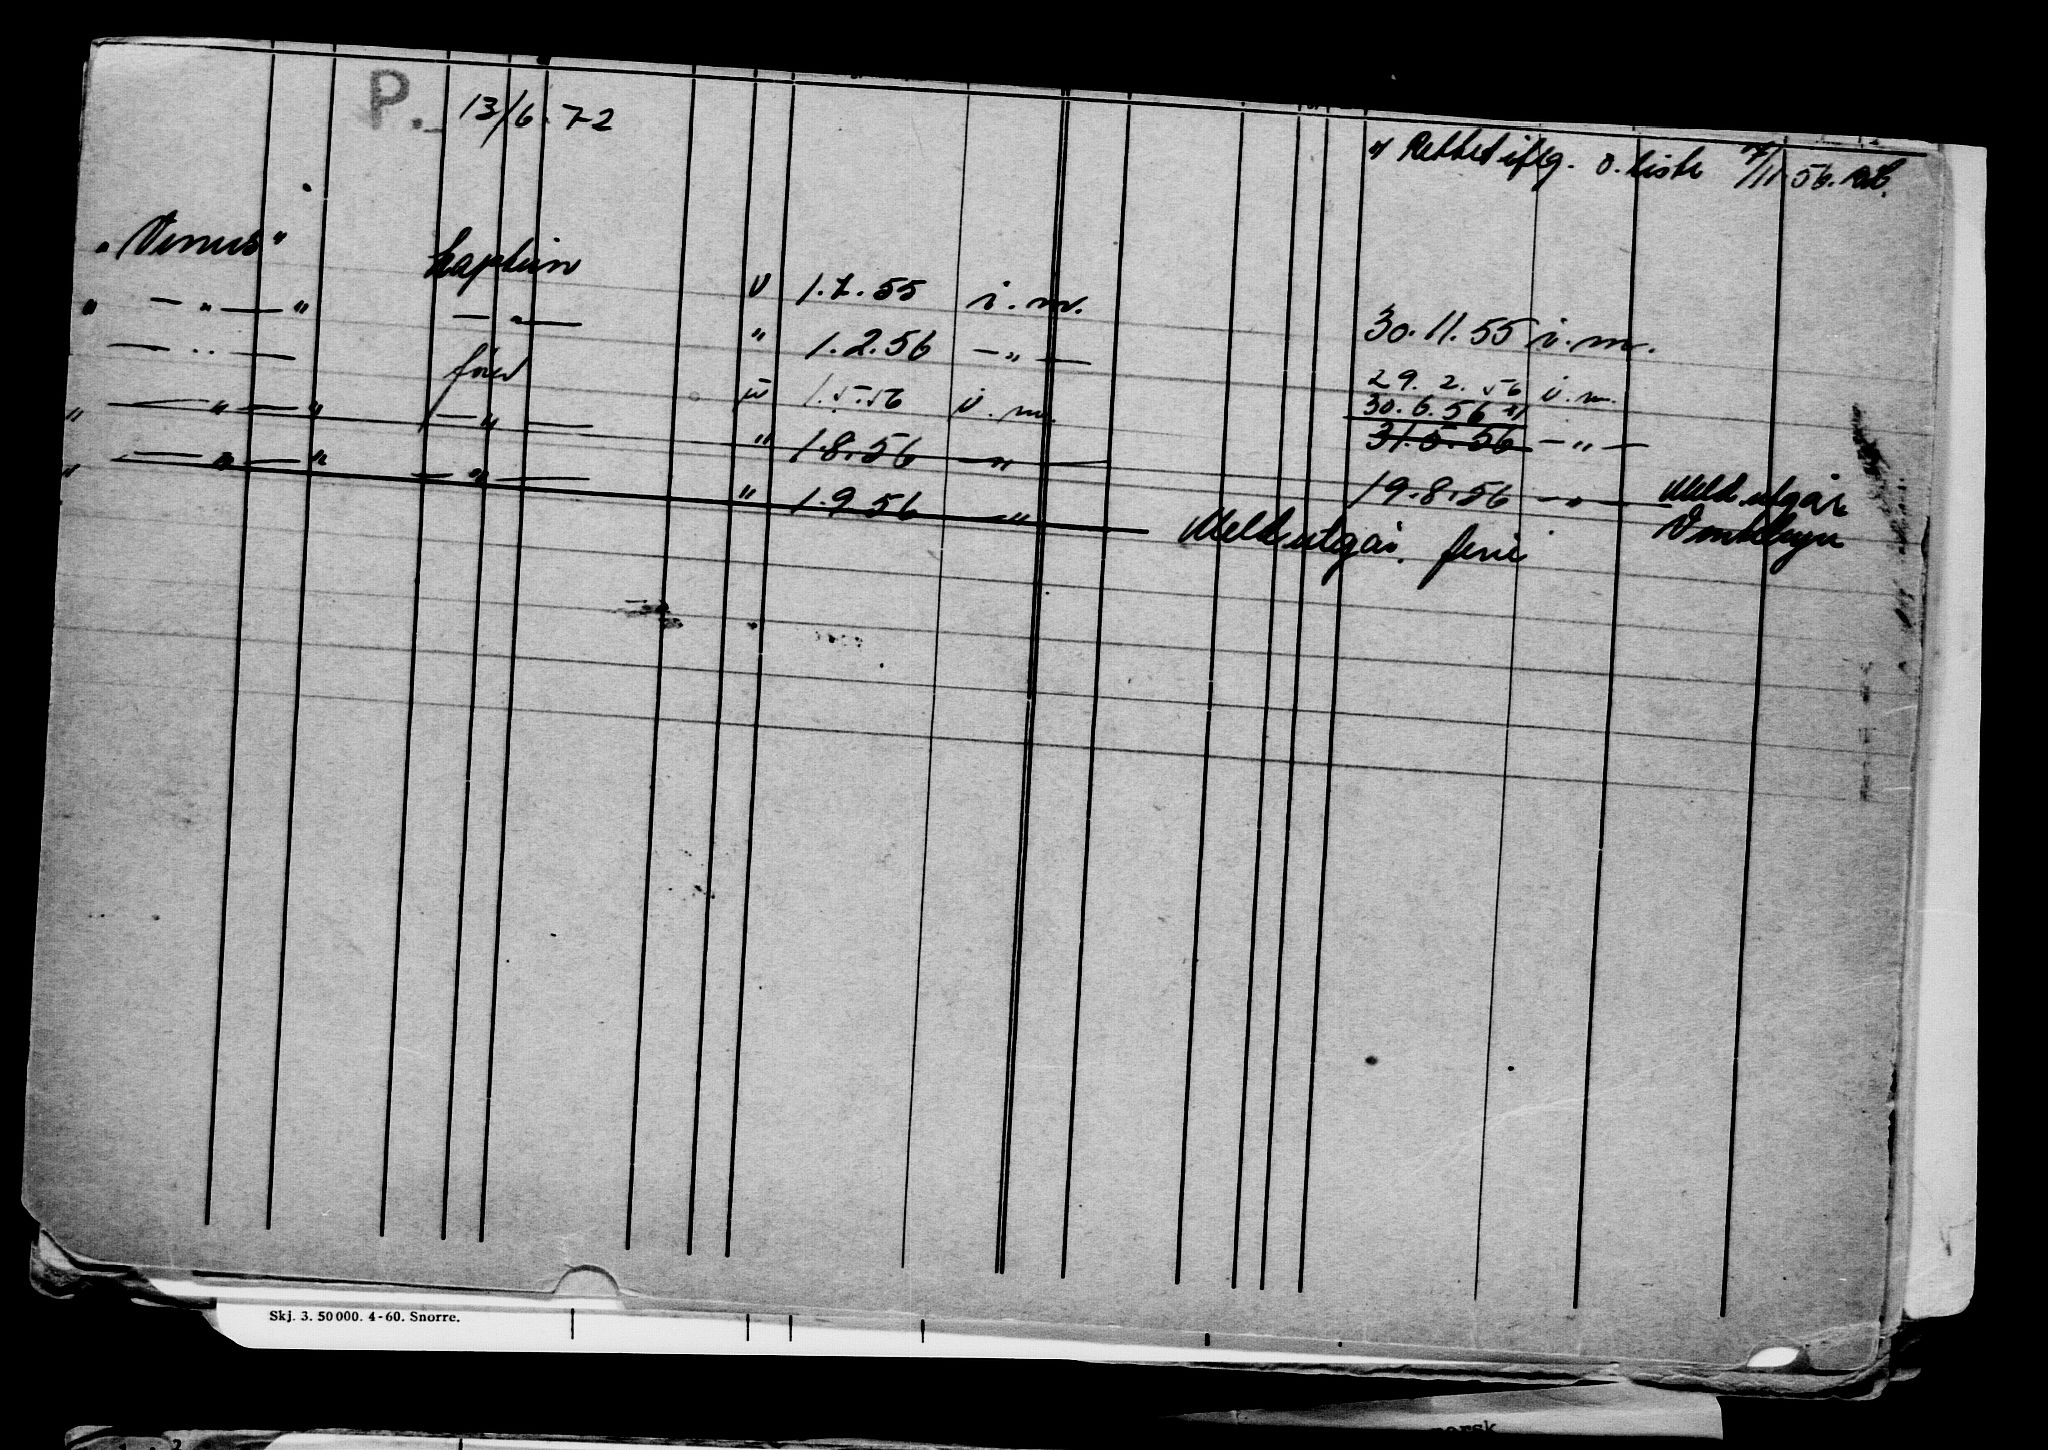 P. 13/6.72
x/ Rettet iflg. o. liste 7/11.56.
"Venus" kaptein v 1.7.55 i.m. 30.11.55 i.m.
" — " — " — " — " 1.2.56 — " — 29.2.56 i.m.
— " — fører v 1.5.56 i.m. 30.6.56 x/
31.5.56 — " —
" — " — " — " — " 1.8.56 — " — 19.8.56 — " — Meld. utgår
" — " — " — " — " 1.9.56 — " — Meld. utgår. ferie Ventehyre
Skj. 3. 50 000. 4-60. Snorre.
norsk